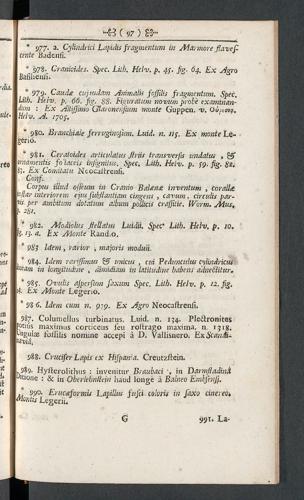 ( 97 )
* 977. 2. Cylindrici Lapidis fragmentum in Marmore flaves-
cente Badensi.
* 978. Cranioides. Spec. Lith. Helv. p. 45. fig. 64. Ex Agro
Basileensi.
* 979. Caudæ cujusdam Animalis fossilis fragmentum. Spec.
Lith. Helv. p. 66. fig. 88. Figuratum novum probe examinan-
dum: Ex Altissimo Glaronensium monte Guppen. v.
Helv. A. 1705.
* 980. Branchiale ferruginosum. Luid. n. 115. Ex monte Le-
gerio.
* 981. Ceratoides articulatus striis transversis undatus, &
ornamentis foliaceis insignitus. Spec. Lith. Helv. p. 59. fig. 82.
83. Ex Comitatu Neocastrensi.
Conf.
Corpus illud osseum in Cranio Balænæ inventum, corallæ
instar interiorem ejus substantiam cingens, cavum, circulis par-
vis per ambitum dotatum album pollicis crassitie. Worm. Mus.
p. 281.
* 982. Modiolus stellatus Luidii. Spec. Lith. Helv. p. 10.
fig. 13. a. Ex Monte Randio.
* 983 Idem, rarior, majoris moduli.
* 984. Idem rarissimus & unicus, cui Pedunculus cylindricus
unciam in longitudine, dimidiam in latitudine habens adnectitur.
* 985. Ovulis aspersum saxum Spec. Lith. Helv. p. 12. fig.
Ex Monte Legerio.
* 986. Idem cum n. 979. Ex Agro Neocastrensi.
987. Columellus turbinatus. Luid. n. 134. Plectronites
potius maximus corticeus seu rostrago maxima. n. 1318.
Ungulæ fossilis nomine accepi à D. Vallisnero. Ex Scandi-
988. Crucifer Lapis ex Hispania. Creutzstein.
989. Hysterolithus: invenitur Braubaci, in Darmstadina
Ditione: & in Oberlehnstein haud longe à Balneo Embsensi.
990. Erucæformis Lapillus fusci coloris in saxo cinereo.
Montis Legerii.
G
991. La-